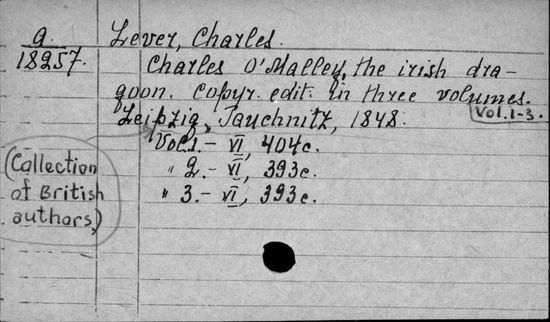 a.
18257.
Lever, Charles.
Charles O'Malley, the irish dra-
goon. Copyr. edit. In three volumes.
Leipzig, Tauchnitz, 1848.
Vol. 1-3.
Vol.1.- VI, 404c.
" 2.- VI, 393c.
" 3.- VI, 393c.
(Collection
of British
authors)